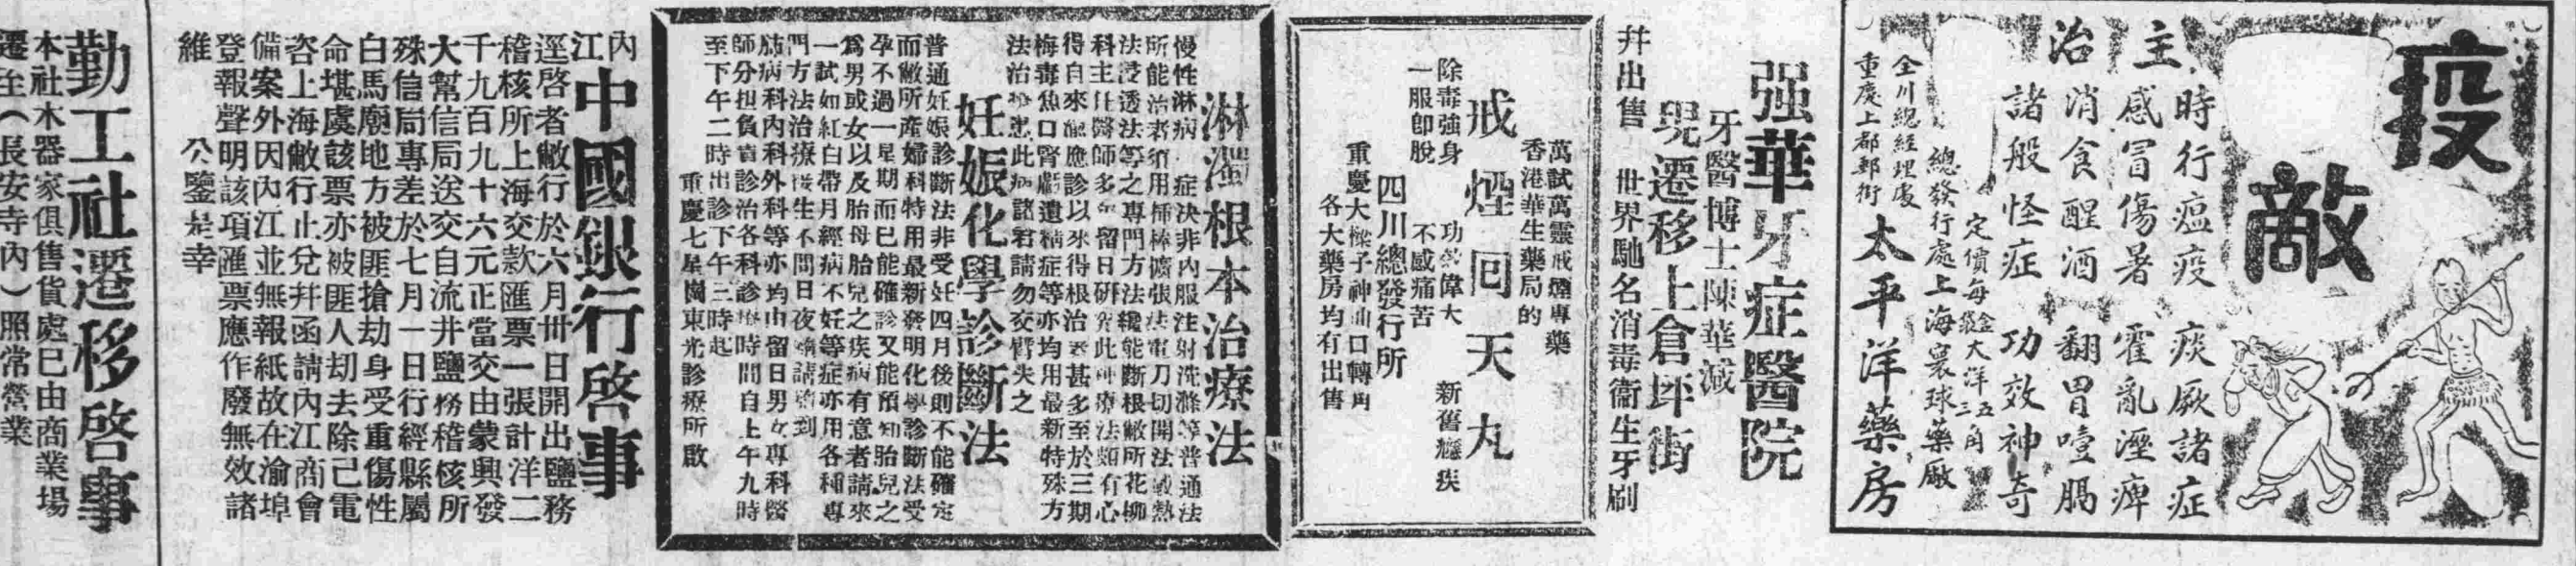 疫敵
主治
時行瘟疫　痰厥諸症
感冒傷暑　霍亂溼痺
消食醒酒　翻胃噎膈
諸般怪症　功效神奇
定價每盒大洋五角
總發行處上海寰球藥廠
全川總經理處
重慶上都郵街
太平洋藥房
强華牙症醫院
牙醫博士陳華減
現遷移上倉坪街
幷出售　世界馳名消毒衞生牙刷
萬試萬靈戒煙專藥
香港華生藥局的
戒煙回天丸
除毒強身　功效偉大　新舊癮疾
一服卽脫　不感痛苦
四川總發行所
重慶大樑子神仙口轉角
各大藥房均有出售
淋濁根本治療法
慢性淋病一症決非內服注射洗滌等普通法
所能治者須用擴張法電刀切開法
法浸透法等之專門方法纔能斷根敝所花柳
科主任醫師多年留日研究此種療法頗有心
得自來應診以來得根治者甚多至於三期
梅毒魚口腎虧遺精症等亦均用最新特殊方
法治療患此病諸君請勿交臂失之
妊娠化學診斷法
普通妊娠診斷法非受妊四月後則不能確定
而敝所產婦科特用最新發明化學診斷法受
孕不過一星期而已能確診又能預知胎兒之
爲男或女以及胎母胎兒之疾病有意者請來
一試如紅白帶月經病不妊等症亦用各種專
門方法治療
肺病科內科外科等亦均由留日男女專科醫
師分担負責診治各科診療時間自上午九時
至下午二時出診下午三時起
重慶七星崗東光診療所啟
內江中國銀行啓事
逕啓者敝行於六月卅日開出鹽務
稽核所上海交款匯票一張計洋二
千九百九十六元正當交由蒙興發
大幫信局送交自流井鹽務稽核所
殊信局專差於七月一日行經縣屬
白馬廟地方被匪搶劫身受重傷性
命堪虞該票亦被匪人刧去除已電
咨上海敝行止兌幷函請內江商會
備案外因內江並無報紙故在渝埠
登報聲明該項匯票應作廢無效諸
維
公鑒是幸
勤工社遷移啓事
本社木器家俱售貨處已由商業場
遷至(長安寺內)照常營業